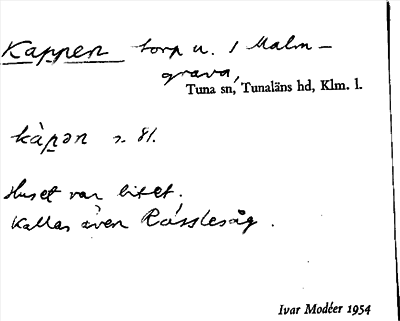 Kappen torp u. / Malm-
grava,
Tuna sn, Tunaläns hd, Klm. l.
kàpən s. 81.
Huset var litet.
Kallas även Rosslesåg.
Ivar Modéer 1954